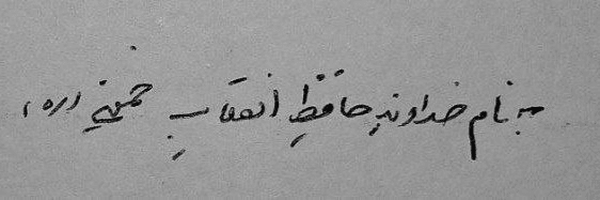 به نام خداوندِ حافظِ انقلابِ خمینی (ره)